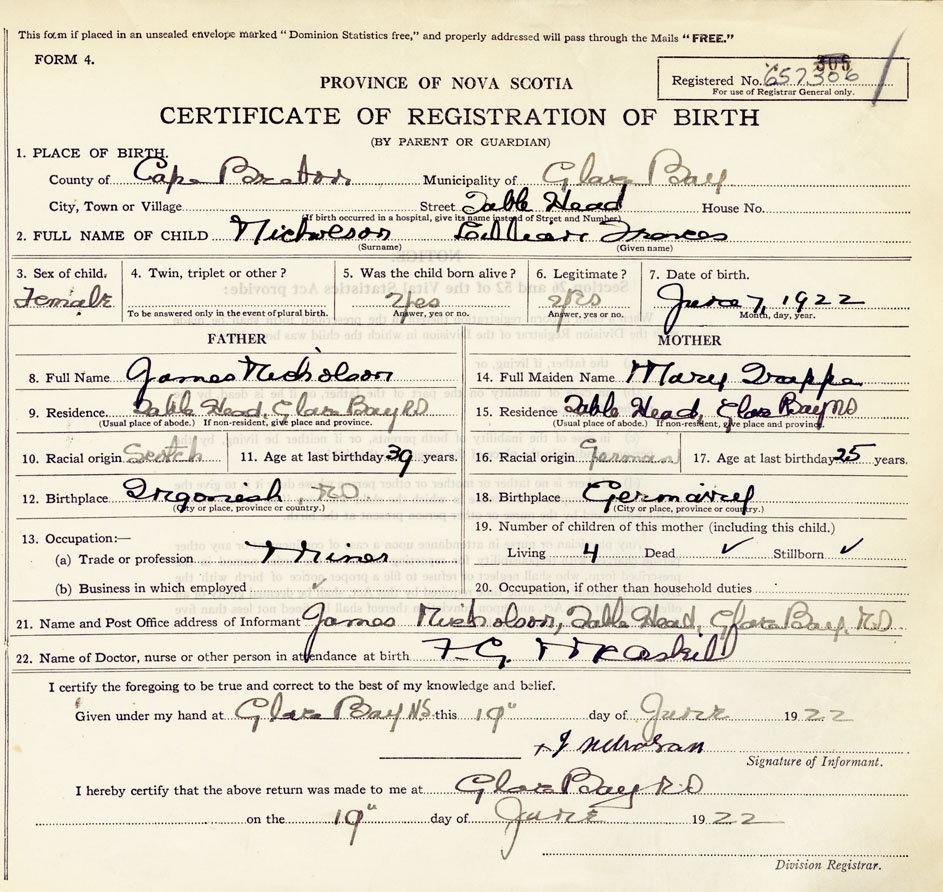 This form if placed in an unsealed envelope marked "Dominion Statistics free," and properly addressed will pass through the Mails "FREE."
FORM 4.
305
PROVINCE OF NOVA SCOTIA
Registered No. 657306
For use of Registrar General only.
CERTIFICATE OF REGISTRATION OF BIRTH
(BY PARENT OR GUARDIAN)
1. PLACE OF BIRTH.
County of Cape Breton Municipality of Glace Bay
City, Town or Village Street Table Head House No.
(If birth occurred in a hospital, give its name instead of Street and Number)
2. FULL NAME OF CHILD Nicholson Lillian Frances
(Surname) (Given name)
3. Sex of child. 4. Twin, triplet or other? 5. Was the child born alive? 6. Legitimate? 7. Date of birth.
Female yes yes June 7, 1922
To be answered only in the event of plural birth. Answer, yes or no. Answer, yes or no. Month, day, year.
FATHER
8. Full Name James Nicholson
9. Residence Table Head, Glace Bay RD
(Usual place of abode.) If non-resident, give place and province.
10. Racial origin Scotch 11. Age at last birthday 39 years.
12. Birthplace RD
(City or place, province or country.)
13. Occupation:—
(a) Trade or profession Miner
(b) Business in which employed ✓
MOTHER
14. Full Maiden Name Mary Trappe
15. Residence Table Head, Glace Bay RD
(Usual place of abode.) If non-resident, give place and province.
16. Racial origin German 17. Age at last birthday 25 years.
18. Birthplace Germany
(City or place, province or country.)
19. Number of children of this mother (including this child.)
Living 4 Dead ✓ Stillborn ✓
20. Occupation, if other than household duties
21. Name and Post Office address of Informant James Nicholson, Table Head, Glace Bay, RD
22. Name of Doctor, nurse or other person in attendance at birth F. G. McAskill
I certify the foregoing to be true and correct to the best of my knowledge and belief.
Given under my hand at Glace Bay N.S. this 19" day of June 1922
Signature of Informant.
I hereby certify that the above return was made to me at Glace Bay RD
on the 19" day of June 1922
Division Registrar.